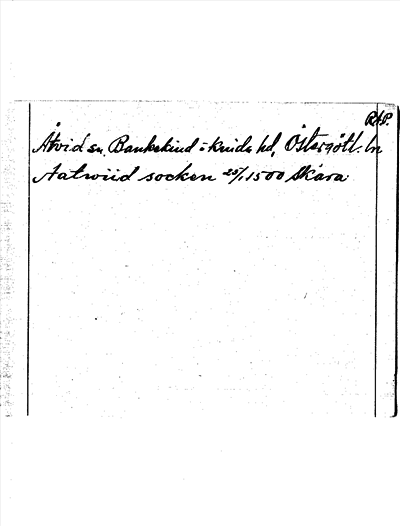 RAP.
Åtvid sn, Bankekind-Kinds hd, Östergötl. ln
Aatwiid socken 25/1 1500 Skara